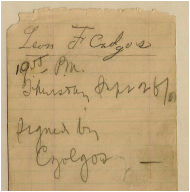 Leon F Czolgos
10 55 P.M.
Thursday Sept 26/01
signed by
Czolgos